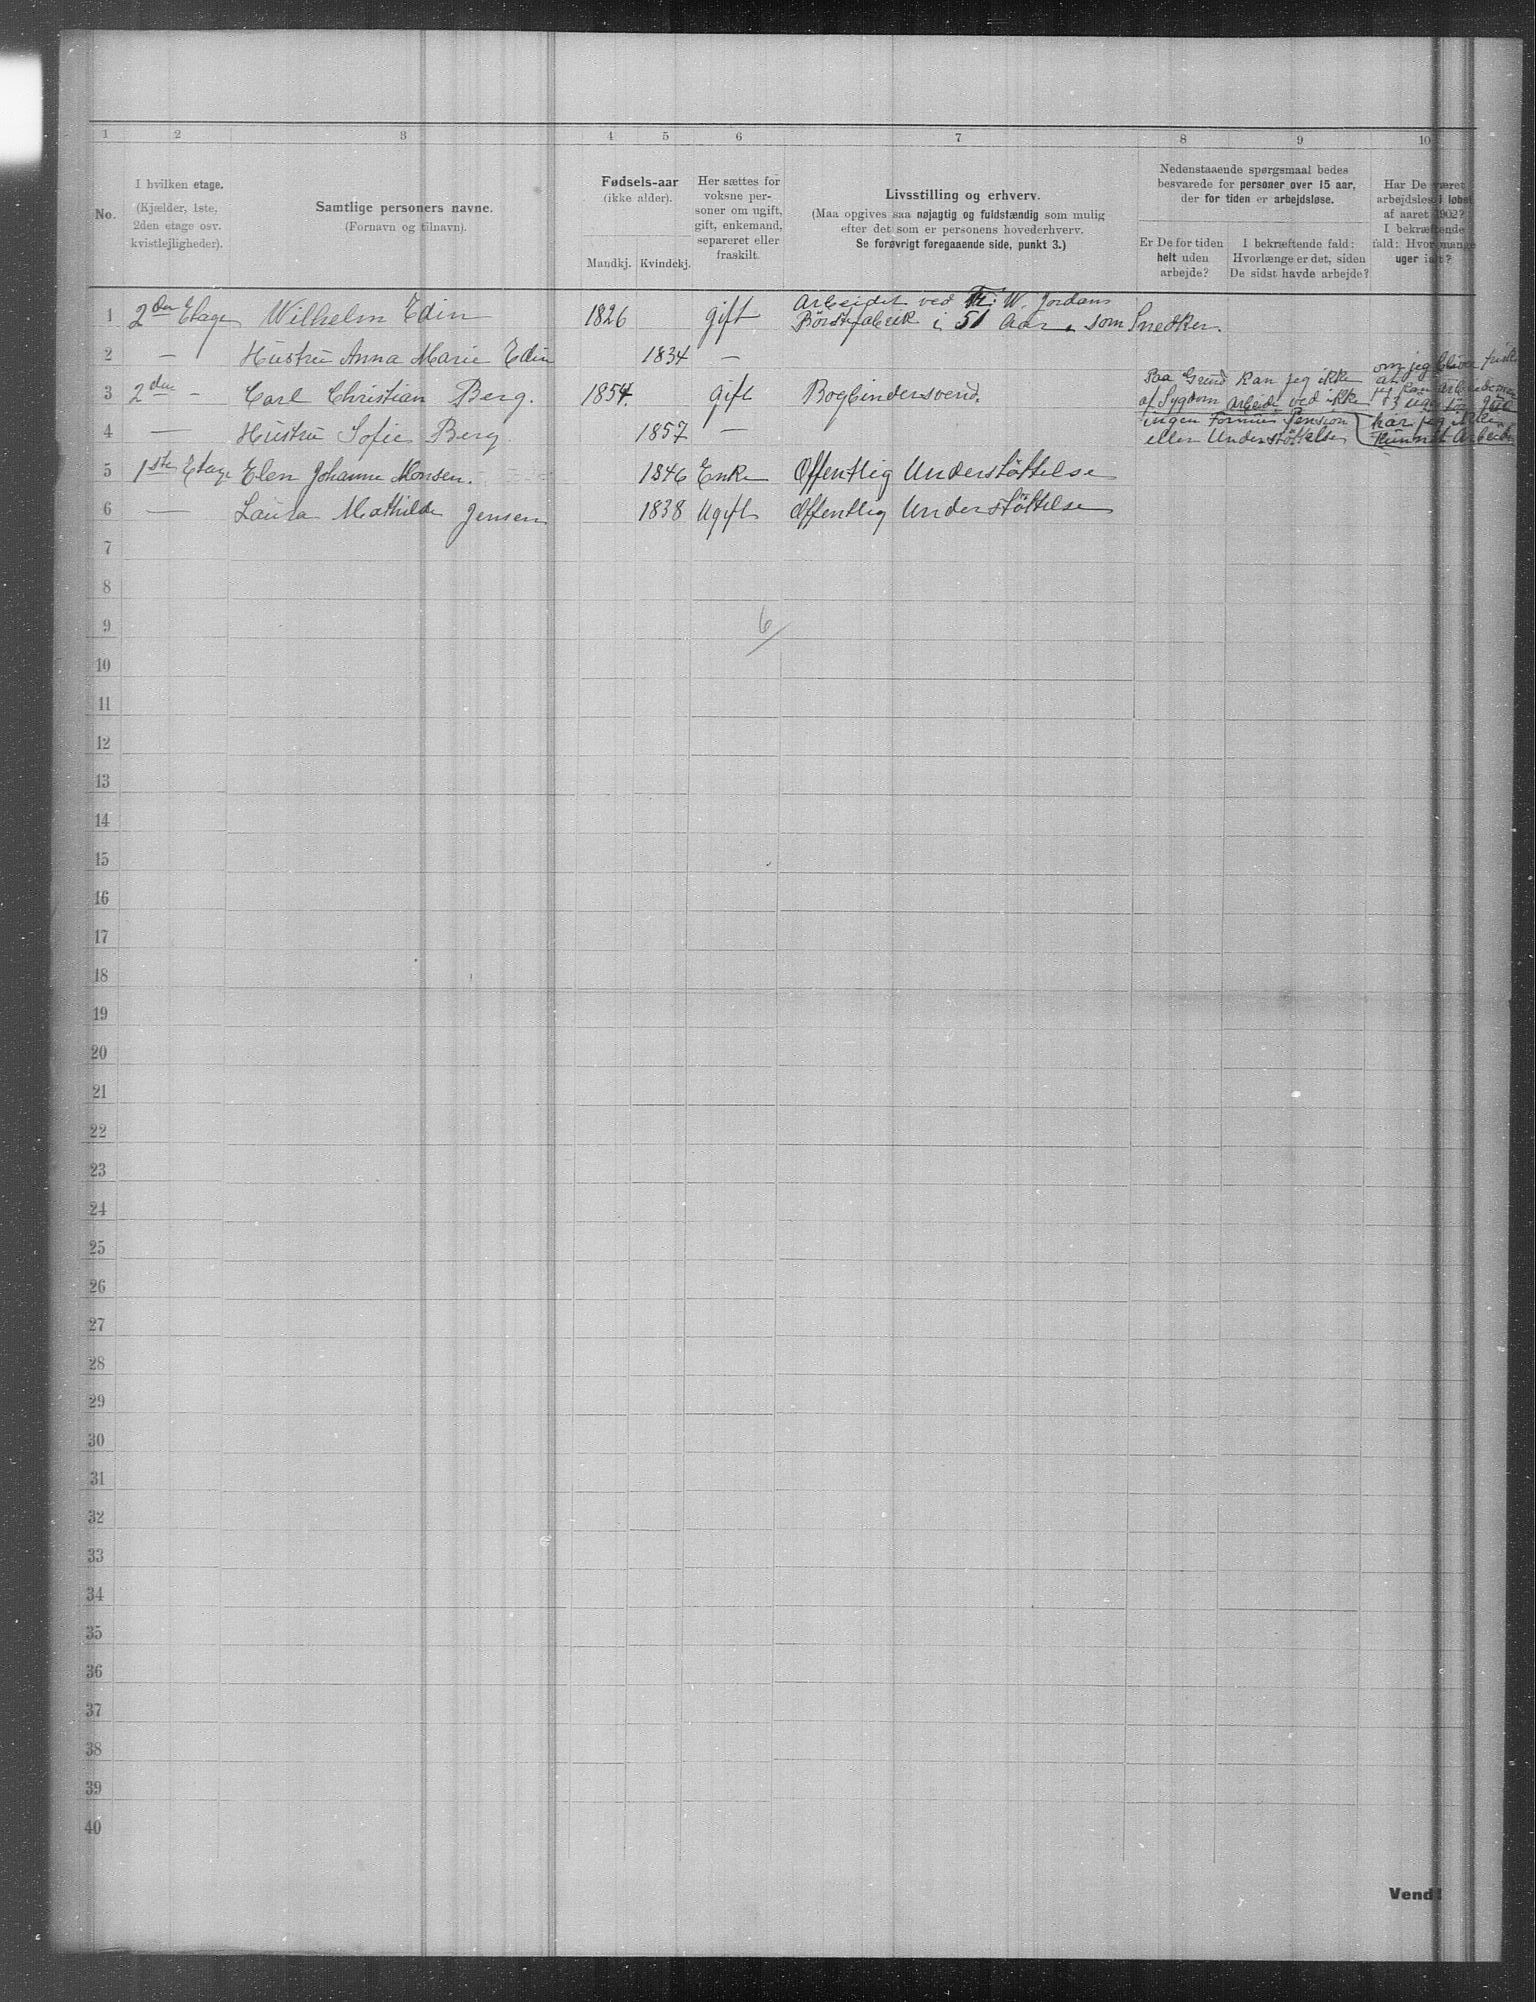 1 2 3 4 5 6 7 8 9 10
No.
I hvilken etage.
(Kjælder, 1ste,
2den etage osv.
kvistlejligheder).
Samtlige personers navne.
(Fornavn og tilnavn).
Fødsels-aar
(ikke alder).
Mandkj. Kvindekj.
Her sættes for
voksne per-
soner om ugift,
gift, enkemand,
separeret eller
fraskilt.
Livsstilling og erhverv.
(Maa opgives saa nøjagtig og fuldstændig som mulig
efter det som er personens hovederhverv.
Se forøvrigt foregaaende side, punkt 3.)
Nedenstaaende spørgsmaal bedes
besvarede for personer over 15 aar,
der for tiden er arbejdsløse.
Er De for tiden
helt uden
arbejde?
I bekræftende fald:
Hvorlænge er det, siden
De sidst havde arbejde?
Har De været
arbejdsløs i løbet
af aaret 1902?
I bekræftende
fald: Hvor mange
uger ialt?
1 2den Etage Wilhelm Edin 1826 gift Arbeidet ved Fr. W. Jordans
Börstefabrik i 51 Aar, som Snedker.
2 — Hustru Anna Marie Edin 1834 —
3 2den - Carl Christian Berg. 1854. gift Bogbindersvend.
Paa Grund kan jeg ikke
af Sygdom arbeide ved ikke
om jeg bliver
4 — Hustru Sofie Berg 1857 —
ingen Formue Pension
eller Understöttelse
har jeg ikke
kunnet Arbeide
5 1ste Etage Elen Johanne Monsen. 1846 Enke Offentlig Understöttelse
6 — Laura Mathilde Jensen 1838 Ugift Offentlig Understöttelse
7
8
9 6
10
11
12
13
14
15
16
17
18
19
20
21
22
23
24
25
26
27
28
29
30
31
32
33
34
35
36
37
38
39
40
Vend!